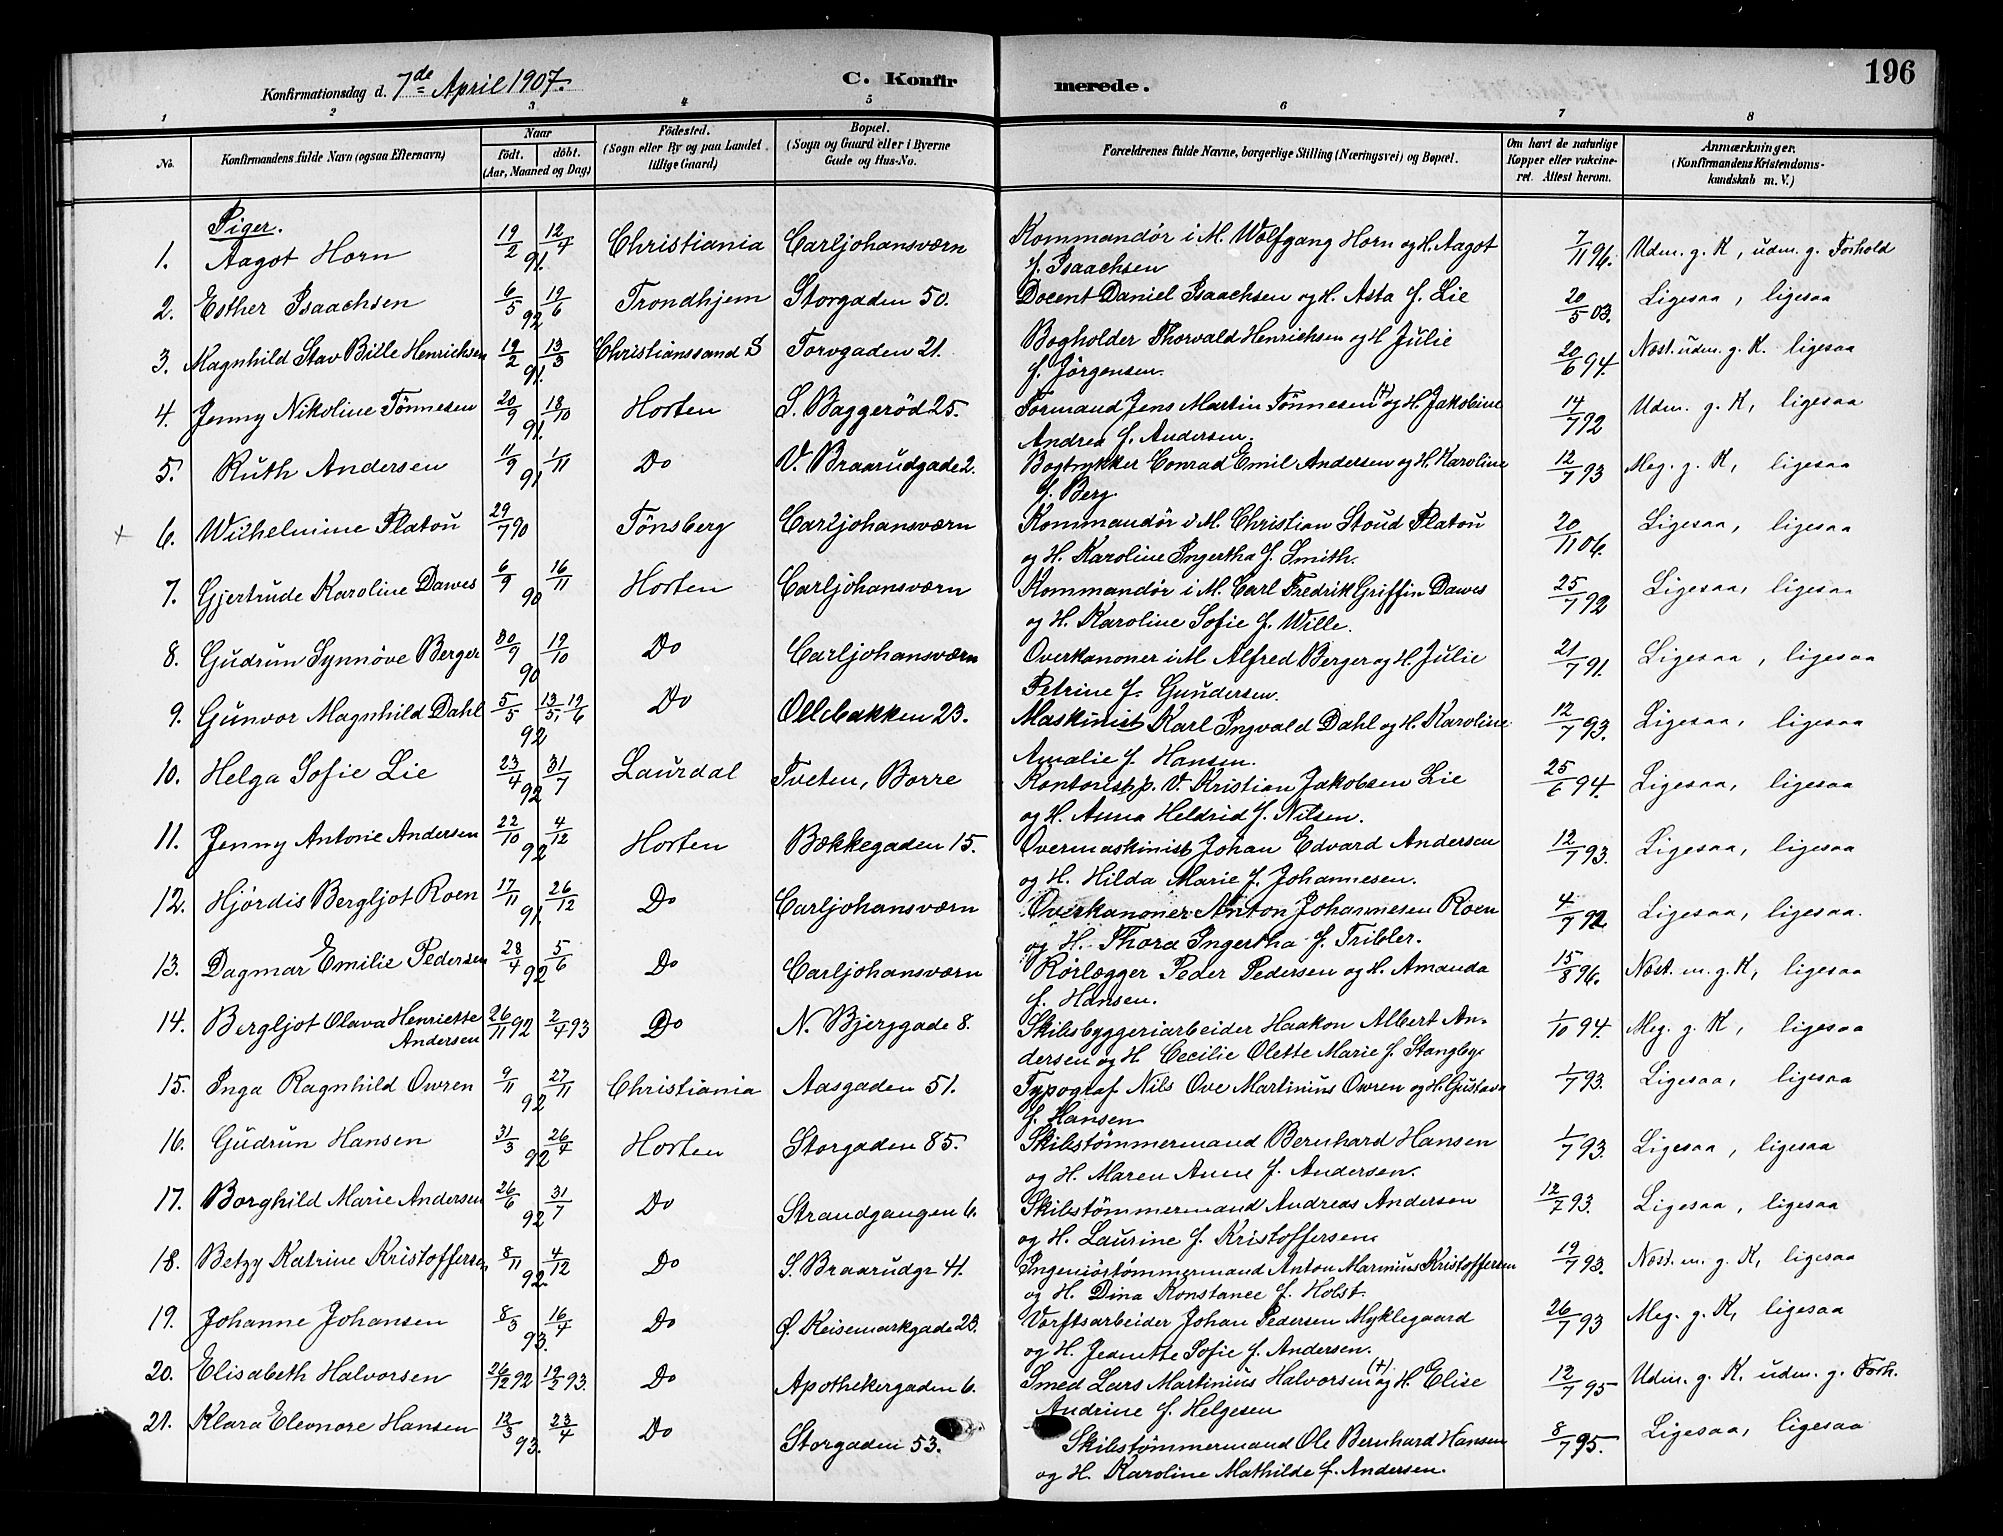 196
Konfirmationsdag d. 7de April 1907. C. Konfir merede.
1 2 3 4 5 6 7 8
No. Konfirmandens fulde Navn (ogsaa Efternavn) Naar født. døbt. (Aar, Maaned og Dag) Fødested. (Sogn eller By og paa Landet tillige Gaard) Bopæl. (Sogn og Gaard eller i Byerne Gade og Hus-No. Forældrenes fulde Navne, borgerlige Stilling (Næringsvei) og Bopæl. Om havt de naturlige Kopper eller vakcineret. Attest herom. Anmærkninger. (Konfirmandens Kristendomskundskab m. V.)
Piger.
1. Aagot Horn 19/2 91. 12/4 Christiania Carljohansværn Kommandør i M. Wolfgang Horn og H. Aagot 7/11 96. Udm. g. K, udm. g. Forhold
f. Isaachsen
2. Esther Isaachsen 6/5 92 19/6 Trondhjem Storgaden 50. Docent Daniel Isaachsen og H. Asta f. Lie 20/5 03. Ligesaa, ligesaa
3. Magnhild Stav Bille Henrichsen 19/2 91. 13/3 Christianssand S Torvgaden 21. Bogholder Thorvald Henrichsen og H Julie 20/6 94. Næst. udm. g. K. ligesaa
f. Jørgensen.
4. Jenny Nikoline Tönnesen 20/9 91. 18/10 Horten S. Baggerød 25. Formand Jens Martin Tönnesen (+) og H. Jakobine 14/7 92 Udm. g. K, ligesaa
Andrea f. Andersen.
5. Ruth Andersen 11/9 91 1/11 Do V. Braarudgade 2. Bogtrykker Conrad Emil Andersen og H. Karoline 12/7 93 Meg. g. K, ligesaa
f. Berg
+ 6. Wilhelmine Platou 29/7 90 Tönsberg Carljohansværn Kommandør i M. Christian Stoud Platou 20/11 06. Ligesaa, ligesaa
og H. Karoline Ingertha f. Smith.
7. Gjertrude Karoline Dawes 6/9 90 16/11 Horten Carljohansværn Kommandør i M. Carl Fredrik Griffin Dawes 25/7 92 Ligesaa, ligesaa
og H. Karoline Sofie f. Wille.
8. Gudrun Synnöve Berger 30/9 90 19/10 Do Carljohansværn Overkanoner i M Alfred Berger og H. Julie 21/7 91. Ligesaa, ligesaa
Petrine f. Gundersen.
9. Gunvor Magnhild Dahl 5/5 92 13/5, 19/6 Do Ollebakken 23. Maskinist Karl Ingvald Dahl og H. Karoline 12/7 93. Ligesaa, ligesaa
Amalie f. Hansen.
10. Helga Sofie Lie 23/4 92 31/7 Laurdal Tveten, Borre Kontorist p. V. Kristian Jakobsen Lie 25/6 94. Ligesaa, ligesaa
og H. Anna Heldrid f. Nilsen.
11. Jenny Antonie Andersen 22/10 92 4/12 Horten Bækkegaden 15. Overmaskinist Johan Edvard Andersen 12/7 93. Ligesaa, ligesaa
og H. Hilda Marie f. Johannesen.
12. Hjördis Bergljot Roen 17/11 91. 26/12 Do Carljohansværn Overkanoner Anton Johannesen Roen 4/7 92 Ligesaa, ligesaa.
og H. Thora Ingertha f. Tribler.
13. Dagmar Emilie Pedersen 28/4 92 5/6 Do Carljohansværn Rörlægger Peder Pedersen og H. Amanda 15/8 96. Næst. m. g. K, ligesaa
f. Hansen.
14. Bergljot Olava Henriette 26/11 92 2/4 93 Do N. Bjerggade 8. Skibsbyggeriarbeider Haakon Albert An- 1/10 94. Meg. g. K, ligesaa
Andersen dersen og H. Cecilie Olette Marie f. Stangeby.
15. Inga Ragnhild Owren 9/11 92 27/11 Christiania Aasgaden 51. Typograf Nils Ove Martinius Owren og H. Gustava 1/7 93. Ligesaa, ligesaa
f. Hansen
16. Gudrun Hansen 31/3 92 26/4 Horten Storgaden 85. Skibstömmermand Bernhard Hansen 1/7 93. Ligesaa, ligesaa
og H. Maren Anne f. Andersen.
17. Borghild Marie Andersen 26/6 92 31/7 Do Strandgangen 6. Skibstömmermand Andreas Andersen 12/7 93. Ligesaa, ligesaa
og H. Laurine f. Kristoffersen
18. Betzy Katrine Kristoffersen 8/11 92. 4/12 Do S. Braarudgr 41. Ingeniörtömmermand Anton Marinius Kristoffersen 19/7 93. Næst. m. g. K, ligesaa
og H. Dina Konstance f. Holst.
19. Johanne Johansen 8/3 93. 16/4 Do Ø. Keisemarkgade 23. Værftsarbeider Johan Pedersen Myklegaard 26/7 93 Meg. g. K, ligesaa
og H. Jeanette Sofie f. Andersen.
20. Elisabeth Halvorsen 26/12 92 19/2 93. Do Apothekergaden 6. Smed Lars Martinius Halvorsen (+) og H. Elise 12/7 95 Udm. g. K. udm. g. Forh.
Andrine f. Helgesen
21. Klara Eleonore Hansen 12/3 93. 23/4 Do Storgaden 53. Skibstömmermand Ole Bernhard Hansen 8/7 95. Ligesaa, ligesaa
og H. Karoline Mathilde f. Andersen.